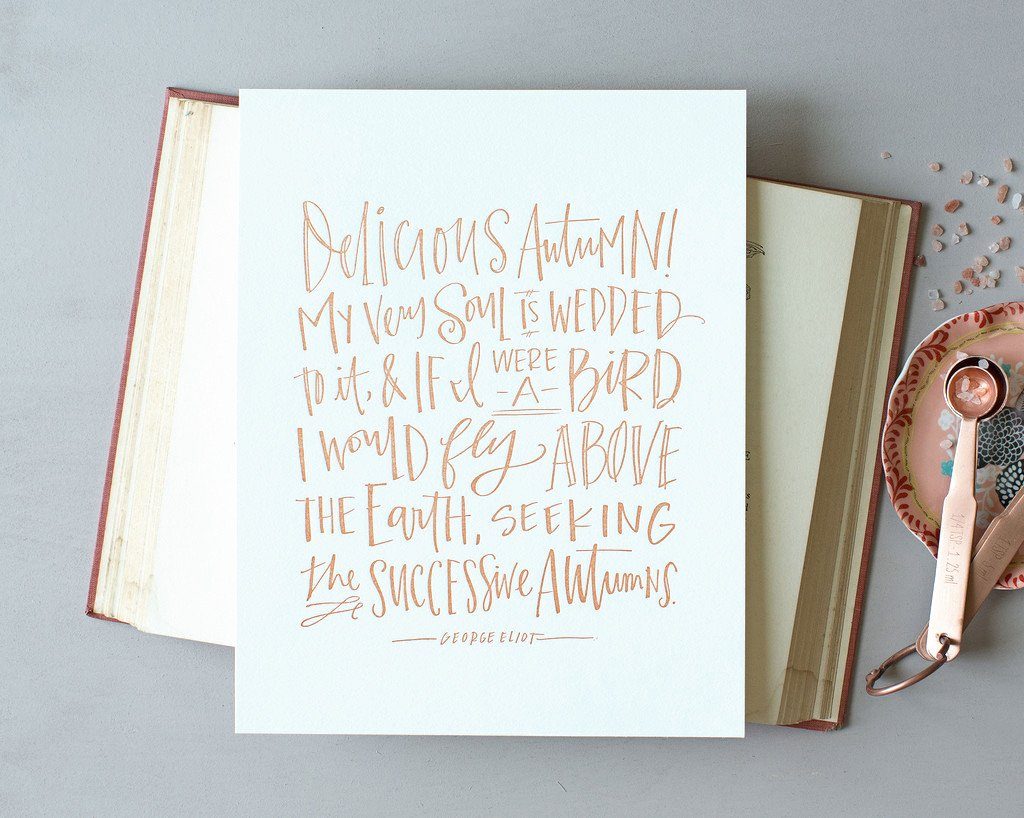 Delicious Autumn!
My very Soul is wedded
to it, & if I were -a- bird
I would fly above
the Earth, seeking
the successive Autumns.
George Eliot
1/4 TSP 1.25 ml